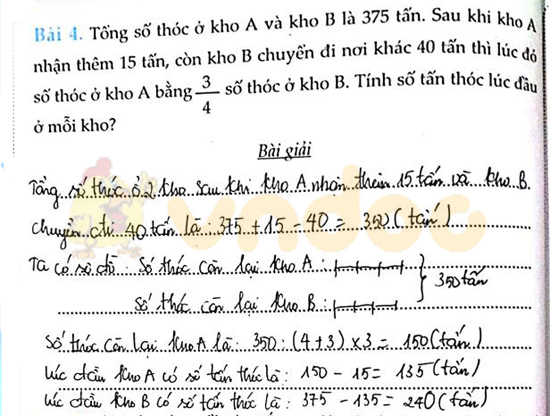 Bài 4. Tổng số thóc ở kho A và kho B là 375 tấn. Sau khi kho A
nhận thêm 15 tấn, còn kho B chuyển đi nơi khác 40 tấn thì lúc đó
số thóc ở kho A bằng 3/4 số thóc ở kho B. Tính số tấn thóc lúc đầu
ở mỗi kho?
Bài giải
Tổng số thóc ở 2 kho sau khi kho A nhận thêm 15 tấn và kho B
chuyển đi 40 tấn là : 375 + 15 - 40 = 350 (tấn)
Ta có sơ đồ : Số thóc còn lại kho A :
350 tấn
Số thóc còn lại kho B :
Số thóc còn lại kho A là : 350 : (4 + 3) x 3 = 150 (tấn)
Lúc đầu kho A có số tấn thóc là : 150 - 15 = 135 (tấn)
Lúc đầu kho B có số tấn thóc là : 375 - 135 = 240 (tấn)
vndoc